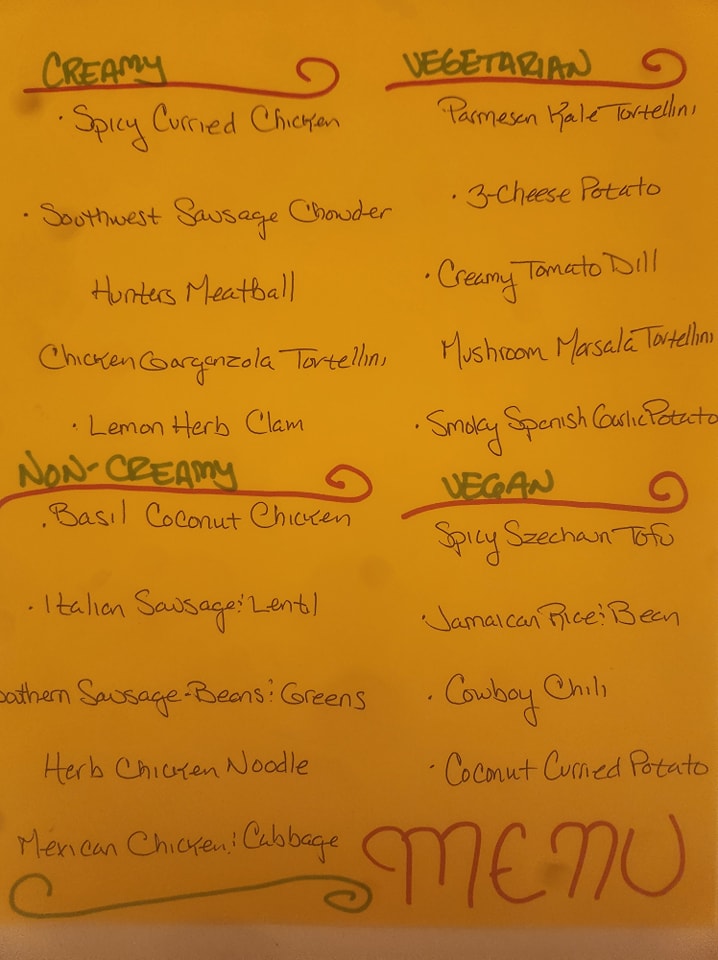 CREAMY
· Spicy Curried Chicken
· Southwest Sausage Chowder
Hunters Meatball
Chicken Gorganzola Tortellini
· Lemon Herb Clam
NON-CREAMY
· Basil Coconut Chicken
· Italian Sausage & Lentil
Southern Sausage-Beans & Greens
Herb Chicken Noodle
Mexican Chicken & Cabbage
VEGETARIAN
Parmesan Kale Tortellini
· 3-Cheese Potato
· Creamy Tomato Dill
Mushroom Marsala Tortellini
· Smoky Spanish Garlic Potato
VEGAN
Spicy Szechaun Tofu
· Jamaican Rice & Bean
· Cowboy Chili
· Coconut Curried Potato
MENU